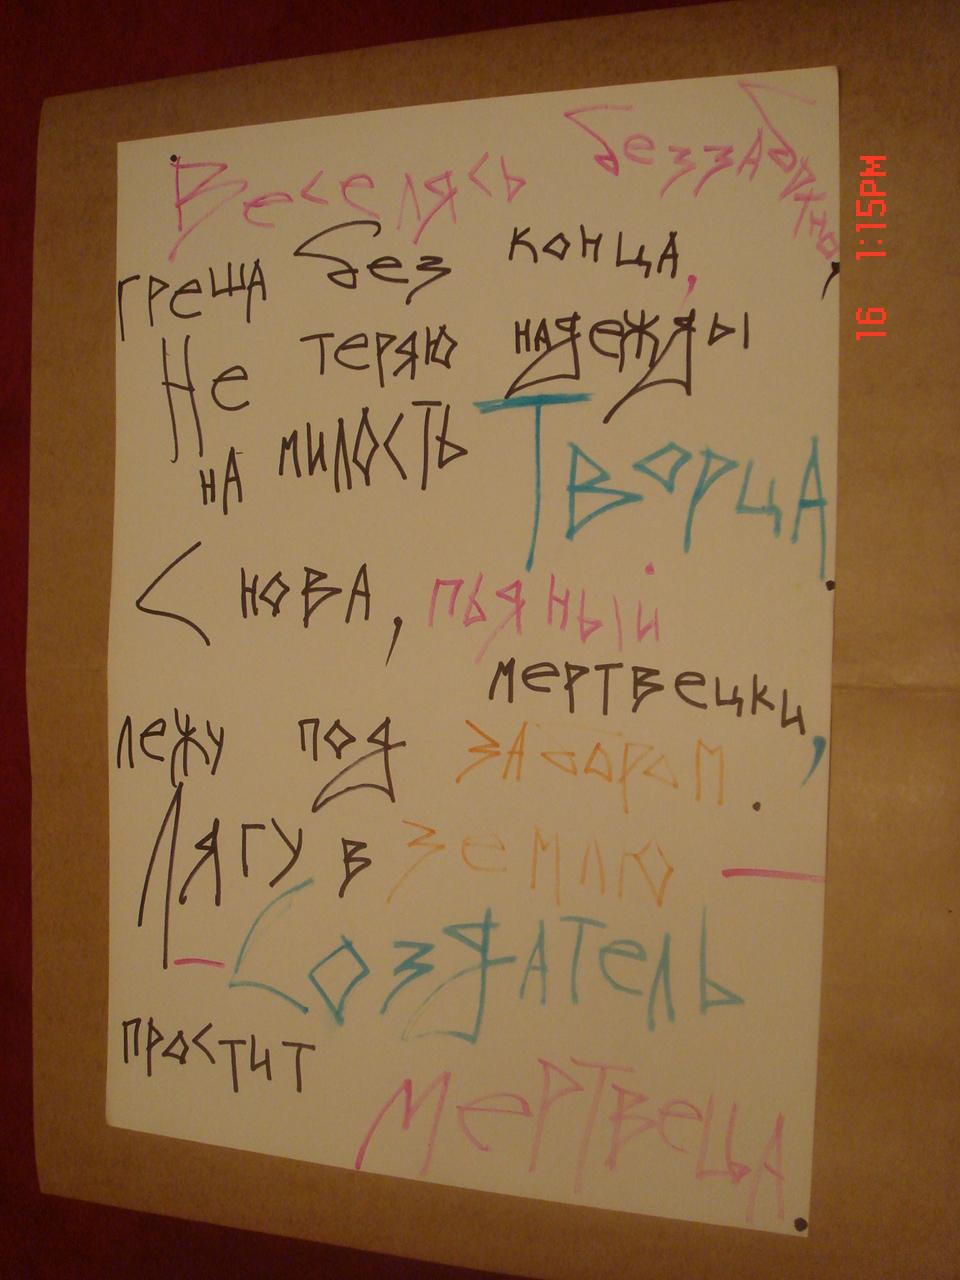 Веселясь беззаботно,
греша без конца,
Не теряю надежды
на милость Творца.
Снова, пьяный
мертвецки,
лежу под забором.
Лягу в землю —
— Создатель
простит
мертвеца
16 1:15PM